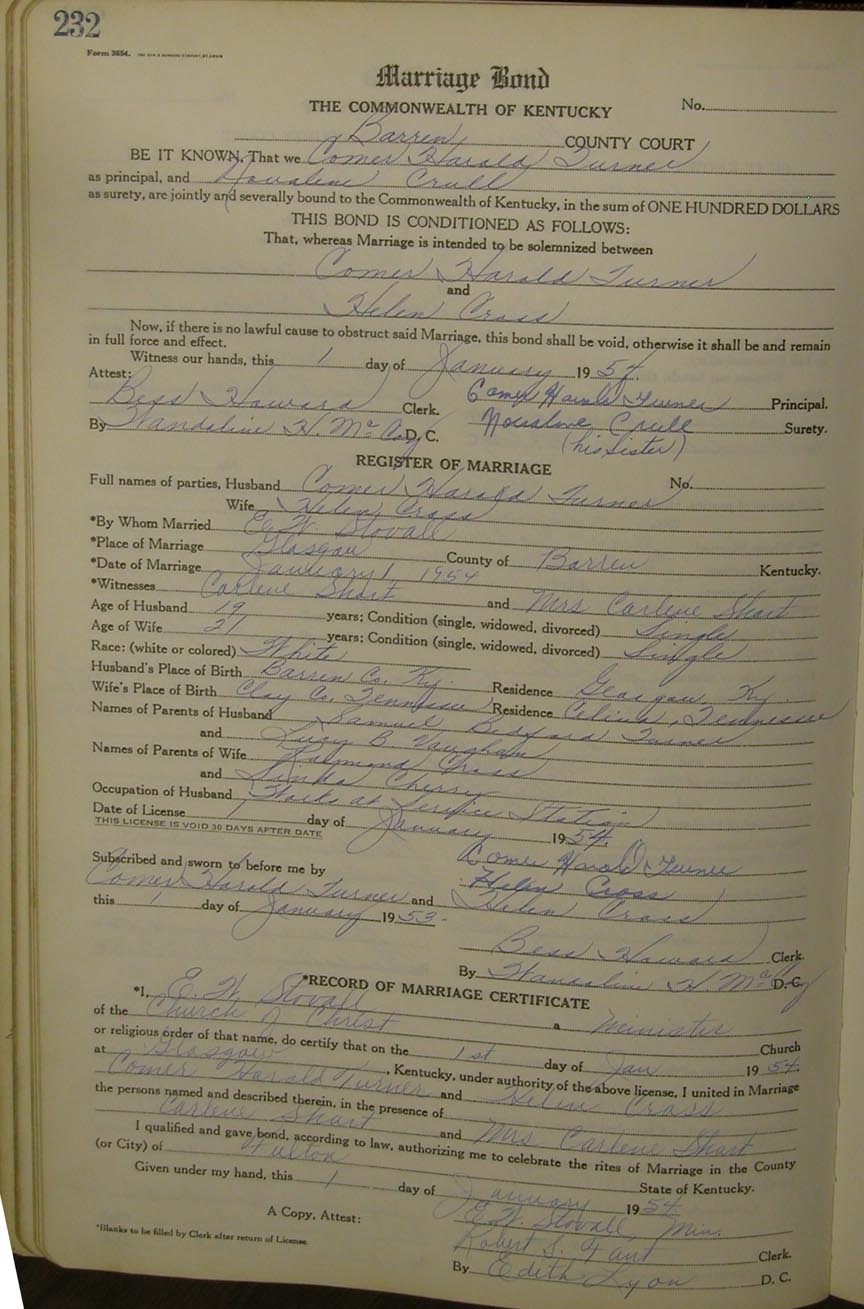 232
Form 365A.
Marriage Bond
THE COMMONWEALTH OF KENTUCKY No.
Barren COUNTY COURT
BE IT KNOWN, That we Comer Harald Turner
as principal, and Novaline Crull
as surety, are jointly and severally bound to the Commonwealth of Kentucky, in the sum of ONE HUNDRED DOLLARS
THIS BOND IS CONDITIONED AS FOLLOWS:
That, whereas Marriage is intended to be solemnized between
Comer Harold Turner
and
Helen Cross
Now, if there is no lawful cause to obstruct said Marriage, this bond shall be void, otherwise it shall be and remain
in full force and effect.
Witness our hands, this 1 day of January 1954.
Attest:
Bess Howard Clerk. Comer Harold Turner Principal.
By Wandaline H. McCoy D. C. Novaline Crull Surety.
(his Sister)
REGISTER OF MARRIAGE
Full names of parties, Husband Comer Harold Turner No.
Wife Helen Cross
*By Whom Married E. W. Stovall
*Place of Marriage Glasgow County of Barren Kentucky.
*Date of Marriage January 1 1954
*Witnesses Carlene Shart and Mrs Carlene Shart
Age of Husband 19 years; Condition (single, widowed, divorced) Single
Age of Wife 21 years; Condition (single, widowed, divorced) Single
Race: (white or colored) White
Husband's Place of Birth Barren Co. Ky. Residence Glasgow, Ky.
Wife's Place of Birth Clay Co. Tennessee Residence Celina, Tennessee
Names of Parents of Husband Samuel Bedford Turner
and Lucy B. Vaughan
Names of Parents of Wife Raymond Cross
and Cherry
Occupation of Husband Works at Service Station
Date of License 1 day of January 1954.
THIS LICENSE IS VOID 30 DAYS AFTER DATE
Comer Harold Turner
Subscribed and sworn to before me by Helen Cross
Comer Harold Turner and Helen Cross
this 1 day of January 1953.
Bess Howard Clerk
By Wandaline H. McCoy D. C.
*RECORD OF MARRIAGE CERTIFICATE
*I, E. W. Stovall
of the Church of Christ a Minister Church
or religious order of that name, do certify that on the 1st day of Jan 1954.
at Glasgow, Kentucky, under authority of the above license, I united in Marriage
Comer Harold Turner and Helen Cross
the persons named and described therein, in the presence of
Carlene Shart and Mrs Carlene Shart
I qualified and gave bond, according to law, authorizing me to celebrate the rites of Marriage in the County
(or City) of Fulton State of Kentucky.
Given under my hand, this 1 day of January 1954
E. W. Stovall, Min.
A Copy, Attest: Robert S. Fant Clerk.
*Blanks to be filled by Clerk after return of License.
By Edith Lyon D. C.